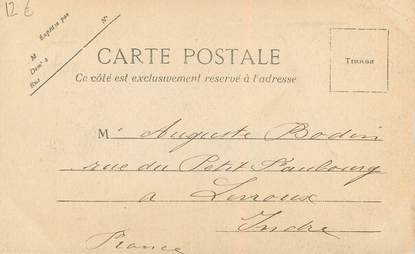 12 €
Expédié par
M
Dem t à
Rue
N°
CARTE POSTALE
Ce côté est exclusivement réservé à l'adresse
TIMBRE
M Auguste Bodin
rue du Petit Faubourg
a Levroux
Indre
France